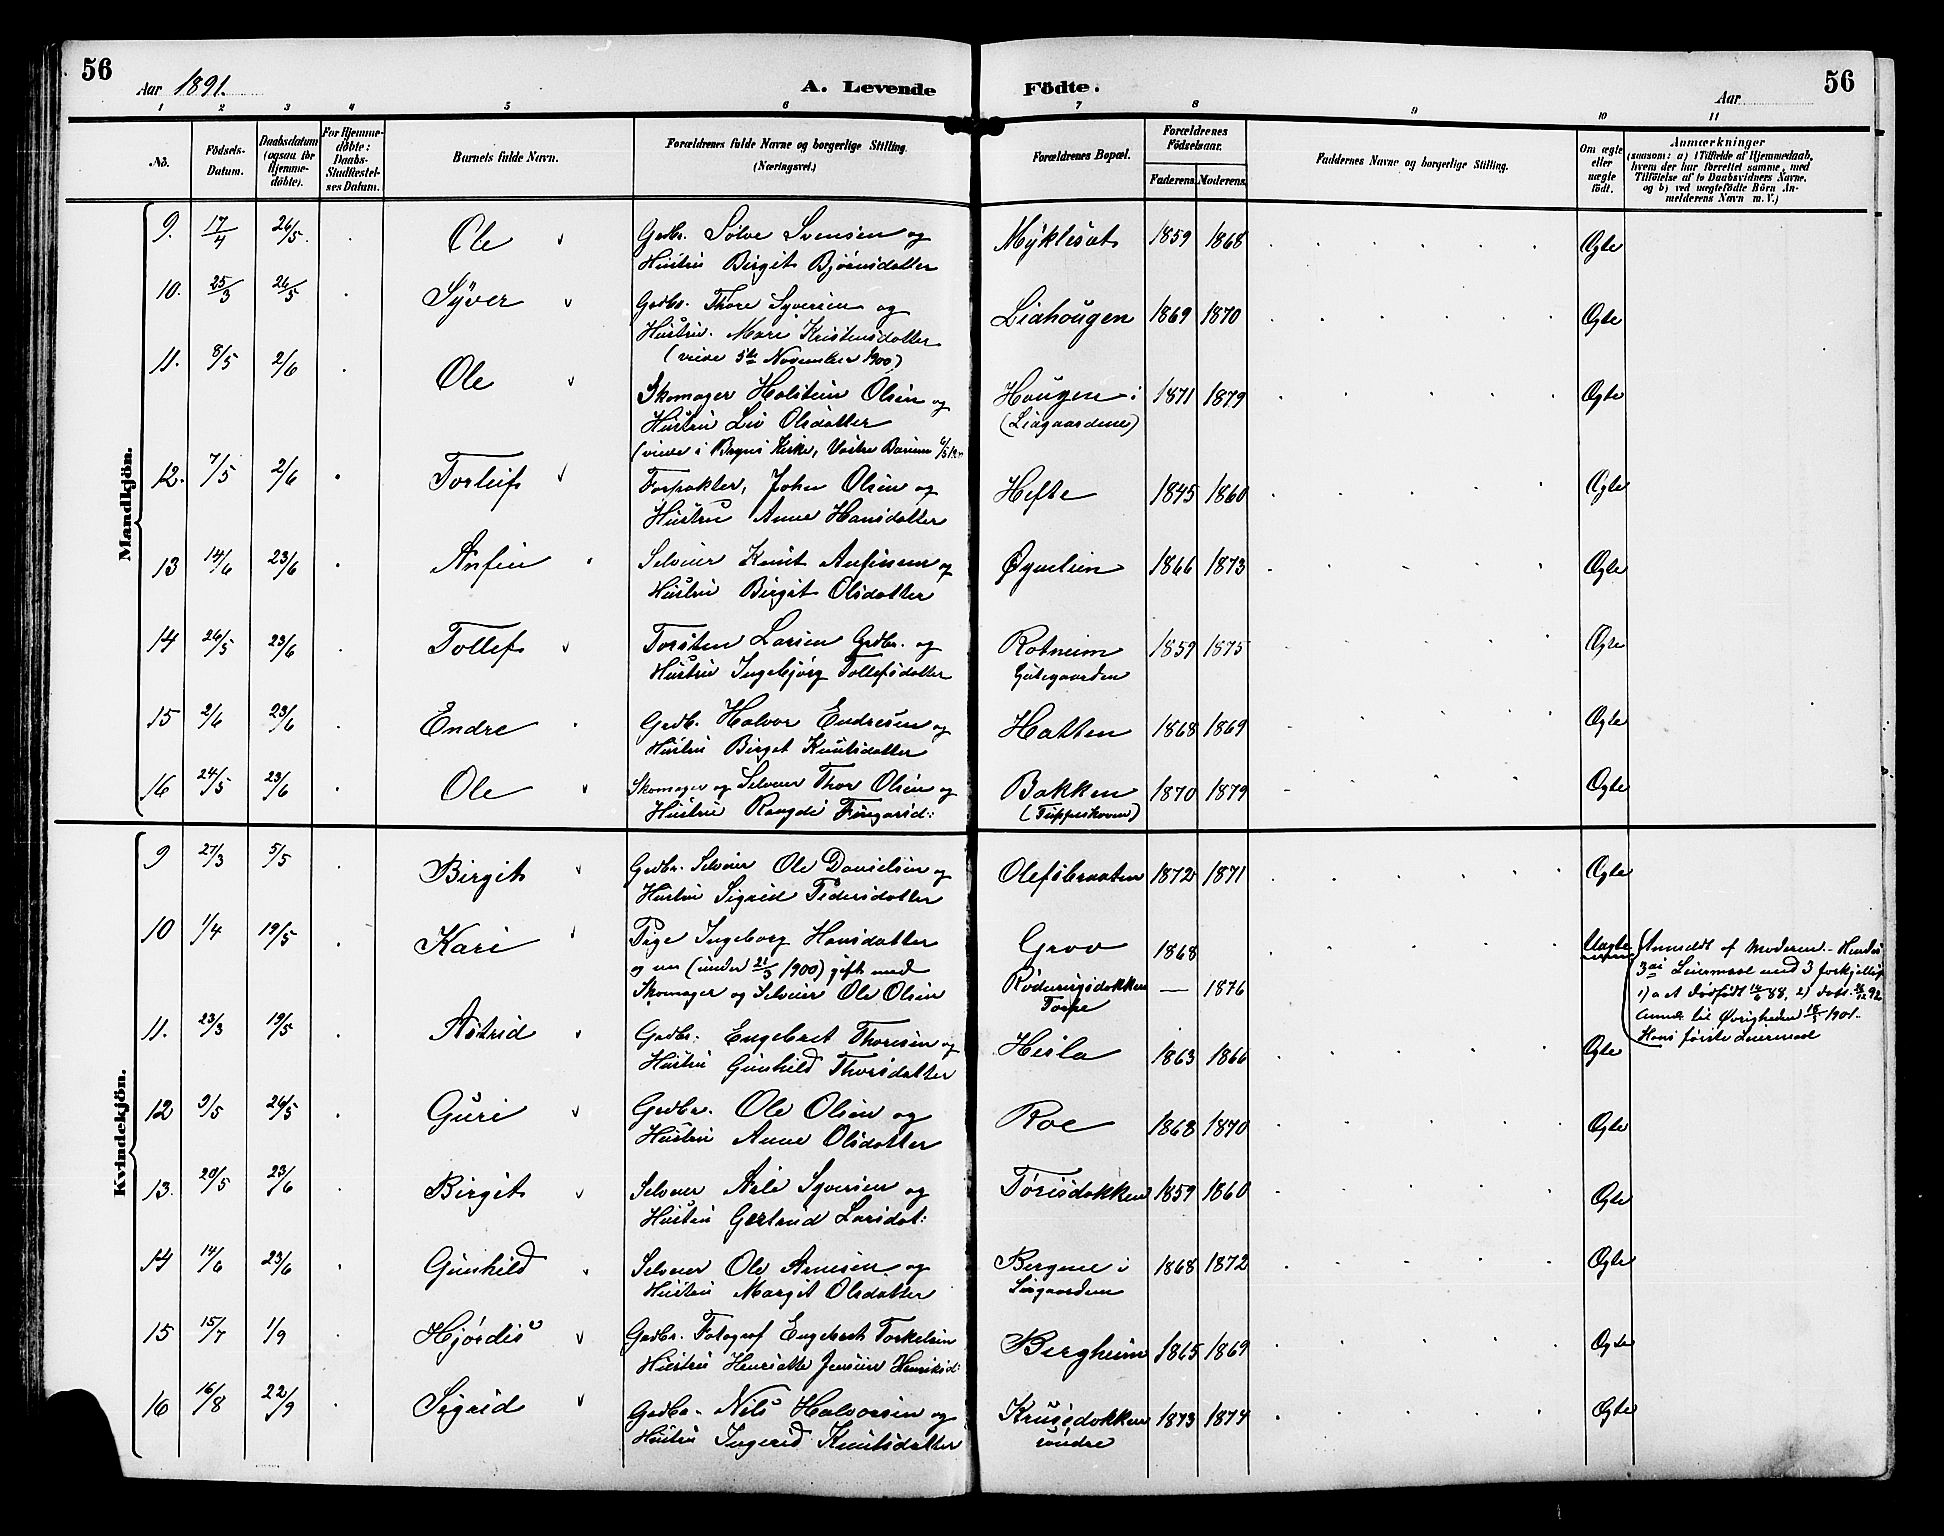 56
Aar 1891.
A. Levende Födte.
Aar
56
1 2 3 4 5 6 7 8 9 10 11
No.
Födsels-Datum.
Daabsdatum (ogsaa for Hjemme-döbte).
For Hjemme-döbte: Daabs-Stadfæstel-ses Datum.
Barnets fulde Navn.
Forældrenes fulde Navne og borgerlige Stilling. (Næringsvei.)
Forældrenes Bopæl.
Forældrenes Födselsaar.
Faderens. Moderens.
Faddernes Navne og borgerlige Stilling.
Om ægte eller uægte födt.
Anmærkninger
(saasom: a) i Tilfælde af Hjemmedaab, hvem der har forrettet samme, med Tilföielse af to Daabsvidners Navne, og b) ved uægtefödte Börn An-melderens Navn m. V.)
Mandkjön.
9. 17/4 26/5. Ole Gvdbr. Sølve Svensen og Mÿklesat 1859 1868 Ægte
Hustru Birgit Bjørnsdatter
10. 25/3 26/5 Sÿver Gvdbr. Thore Syversen og Liahougen 1869 1870 Ægte
Hustru. Mari Kristensdatter
(viede 5te November 1900)
11. 8/5 2/6 Ole Skomager Holstein Olsen og Hougen i 1871 1879 Ægte
Hustru Liv Olsdatter (Liagaardene)
(viede i Bagns Kirke,
12. 7/5 2/6 Torleif Forpakter, John Olsen og Hefte 1845 1860 Ægte
Hustru Anne Hansdatter
13 14/6 23/6 Anfin Selveier Knut Anfinsen og Øynelien 1866 1873 Ægte
Hustru Birgit Olsdatter
14 26/5 23/6 Tollef Torsten Larsen Grdbr. og Rotneim 1859 1875 Ægte
Hustru Ingebjørg Tollefsdatter
15 2/6 23/6 Endre Grdb. Halvor Endresen og Hatten 1868 1869 Ægte
Hustru Birget Knutsdatter
16 24/5 23/6 Ole Skomager og Selveier Thor Olsen og Bakken 1870 1879 Ægte
Hustru Rangdi
Kvindekjön.
9 27/3 5/5 Birgit Gvdbr. Selveier Ole Danielsen og Olefsbraaten 1872 1871 Ægte
Hustru Sigrid Pedersdatter
10 1/4 19/5 Kari Pige Ingeborg Hansdatter Grov 1868 Uægte Anmeldt af Moderen. -
og en (under 21/5 1900) gift med 3die Leiermaal med 3 forskjellige
Skomager og Selveier Ole Olsen — 1876
Torpe anm. til Øvrigheden 18/5 1901.
Hans første Leiermaal
11. 23/3 19/5 Astrid Gvdbr. Engebret Thoresen og Hesla 1863 1866 Ægte
Hustru Gunhild Thorsdatter
12 9/5 26/5 Guri Gvdbr. Ole Olsen og Roe 1868 1870 Ægte
Hustru Anne Olsdatter
13. 20/5 23/6 Birgit Selveier Asle Syversen og Torisdokken 1859 1860 Ægte
Hustru Gertrud Larsdat:
14 14/6 23/6 Gunhild Selveier Ole Arnesen og Bergene i 1868 1872 Ægte
Hustru Margit Olsdatter
15 15/7 1/9 Hjørdis Gvdbr. Fotograf Engebret Torkelsen Bergheim 1865 1869 Ægte
Hustru Henriette Jensine Henriksd:
16 16/8 22/9 Sigrid Gvdbr. Nils Halvorsen og Krusedokken 1873 1874 Ægte
Hustru Ingerid Knutsdatter søndre